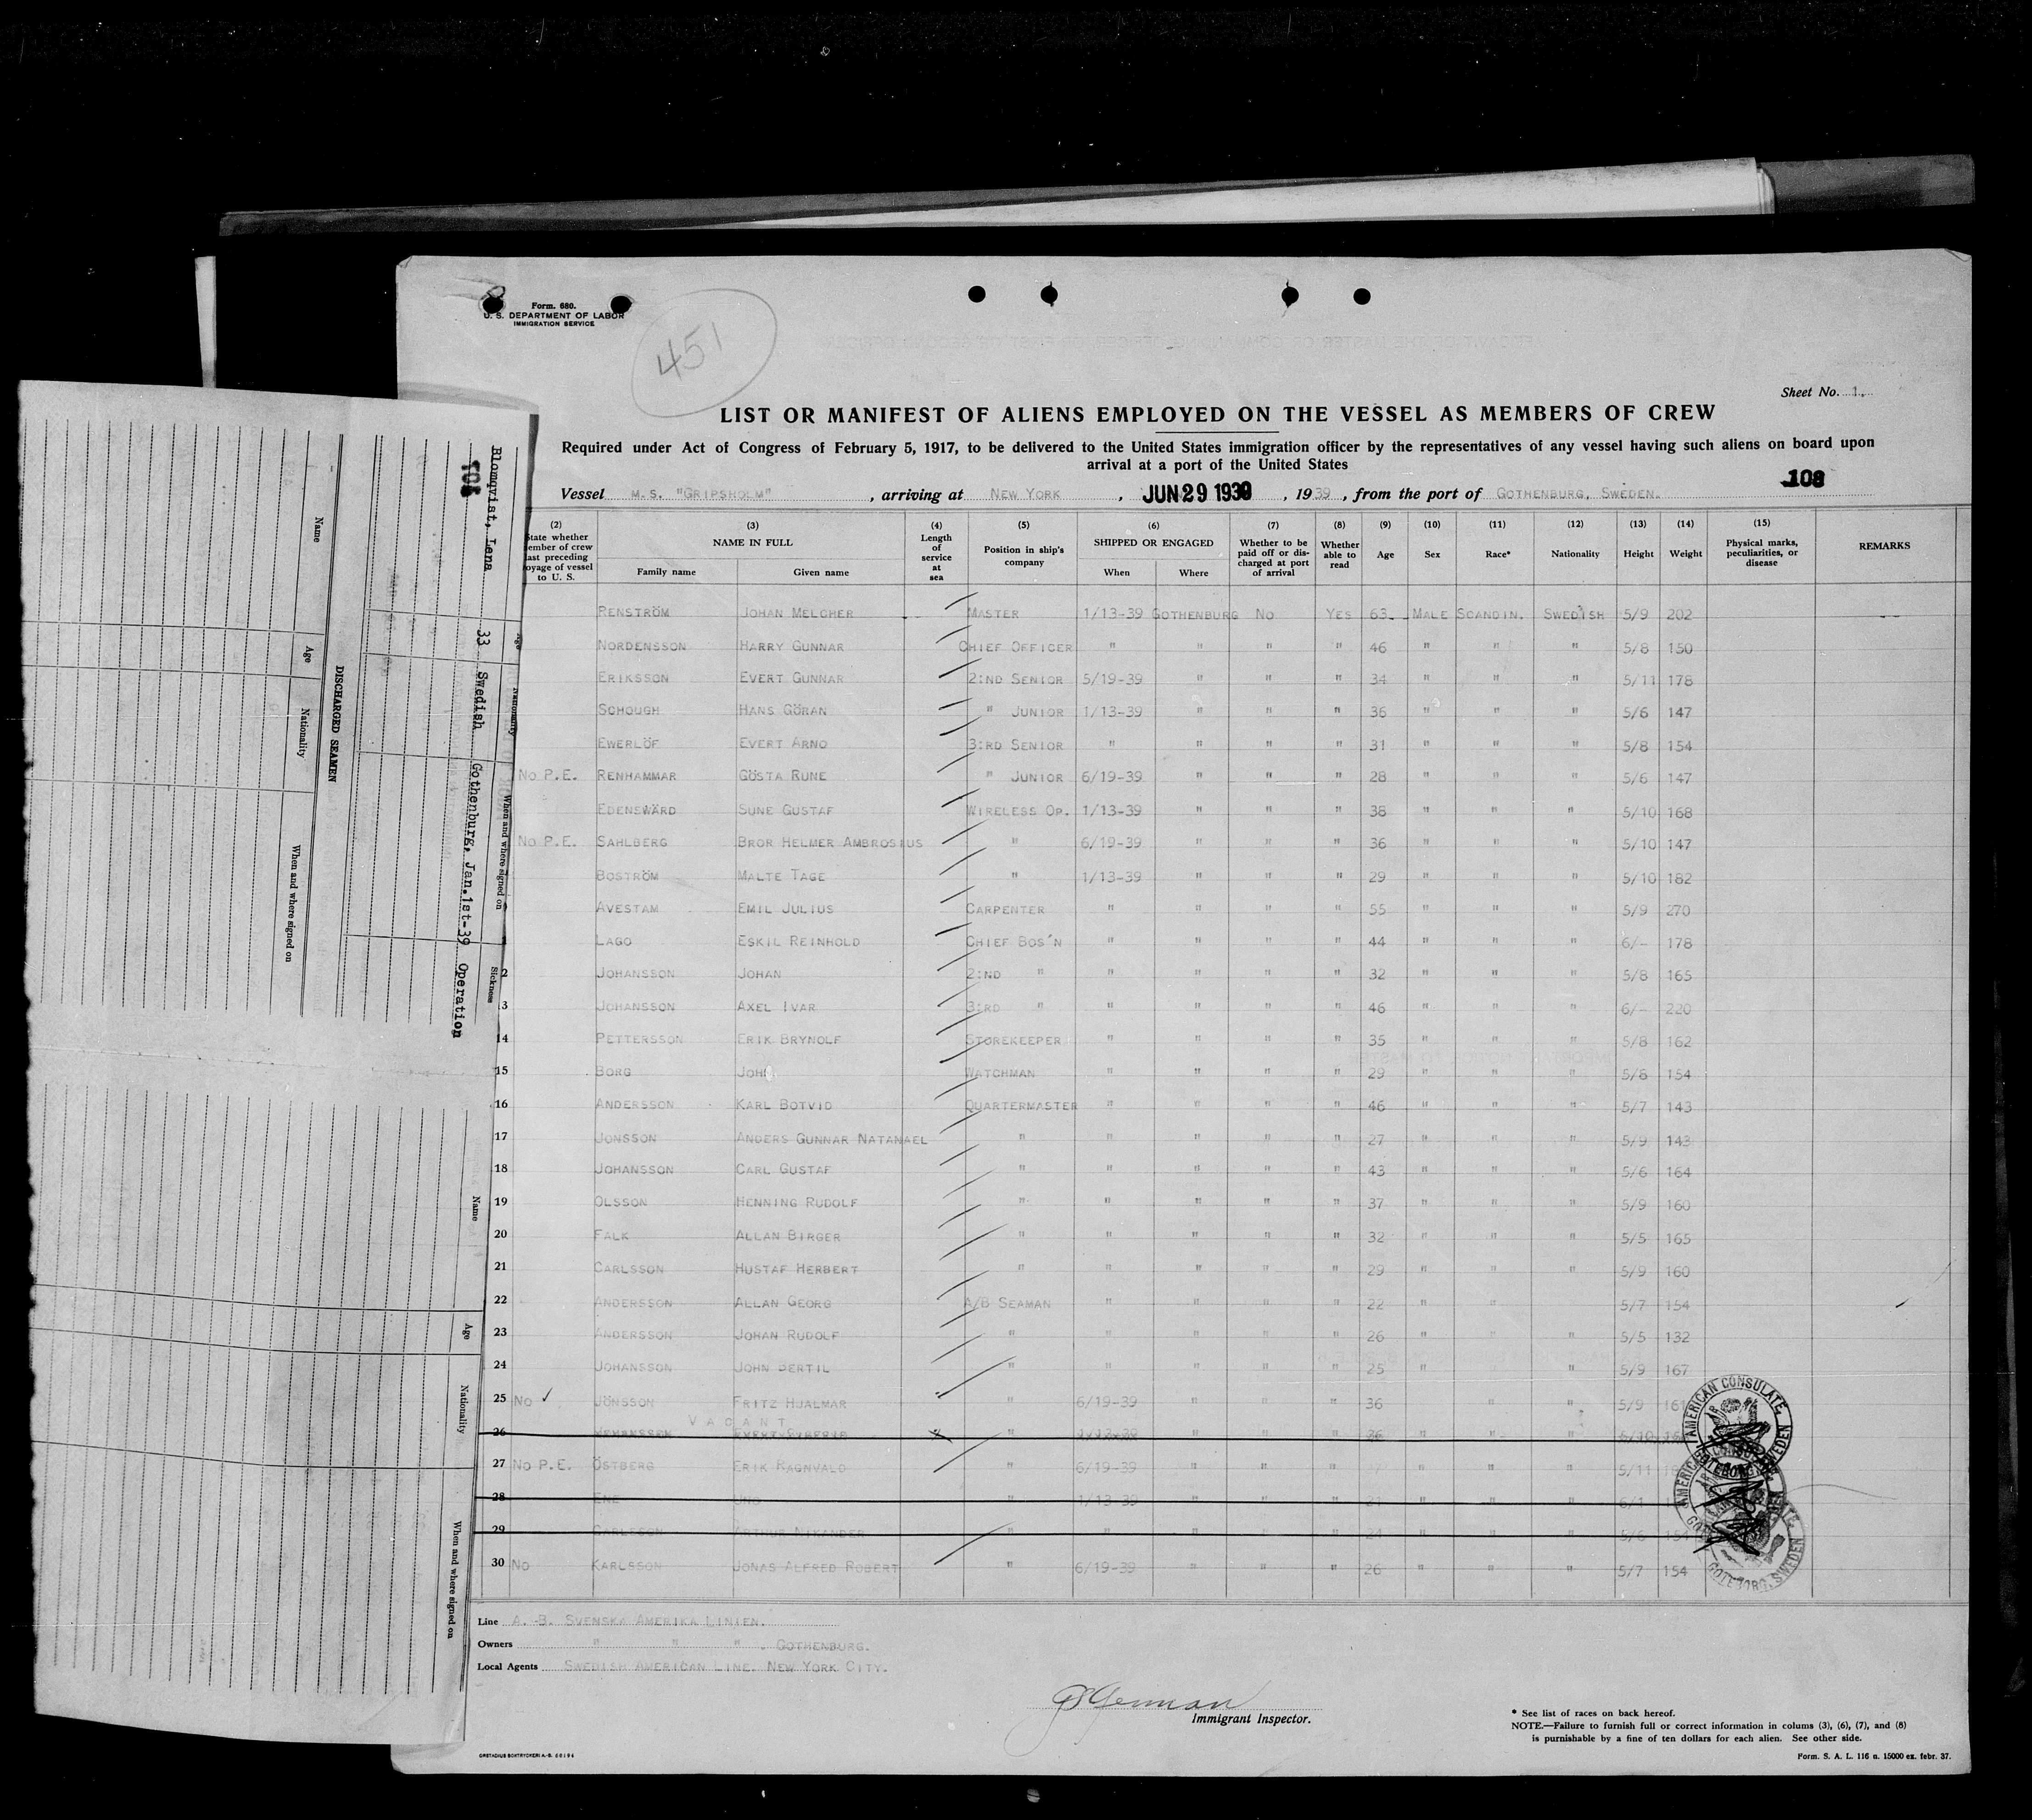 Form. 680.
U. S. DEPARTMENT OF LABOR
IMMIGRATION SERVICE
451
Sheet No. 1.
LIST OR MANIFEST OF ALIENS EMPLOYED ON THE VESSEL AS MEMBERS OF CREW
Required under Act of Congress of February 5, 1917, to be delivered to the United States immigration officer by the representatives of any vessel having such aliens on board upon
arrival at a port of the United States
108
Vessel M.S. "GRIPSHOLM", arriving at NEW YORK, JUN 29 1939, 1939, from the port of GOTHENBURG, SWEDEN.
(2) (3) (4) (5) (6) (7) (8) (9) (10) (11) (12) (13) (14) (15)
State whether member of crew last preceding voyage of vessel to U. S. NAME IN FULL Family name Given name Length of service at sea Position in ship's company SHIPPED OR ENGAGED When Where Whether to be paid off or discharged at port of arrival Whether able to read Age Sex Race* Nationality Height Weight Physical marks, peculiarities, or disease REMARKS
RENSTRÖM JOHAN MELCHER MASTER 1/13-39 GOTHENBURG NO YES 63 MALE SCANDIN. SWEDISH 5/9 202
NORDENSSON HARRY GUNNAR CHIEF OFFICER " " " " 46 " " " 5/8 150
ERIKSSON EVERT GUNNAR 2:ND SENIOR 5/19-39 " " " 34 " " " 5/11 178
SCHOUGH HANS GÖRAN " JUNIOR 1/13-39 " " " 36 " " " 5/6 147
EWERLÖF EVERT ARNO 3:RD SENIOR " " " " 31 " " " 5/8 154
NO P.E. RENHAMMAR GÖSTA RUNE " JUNIOR 6/19-39 " " " 28 " " " 5/6 147
EDENSWÄRD SUNE GUSTAF WIRELESS OP. 1/13-39 " " " 38 " " " 5/10 168
NO P.E. SAHLBERG BROR HELMER AMBROSIUS " 6/19-39 " " " 36 " " " 5/10 147
BOSTRÖM MALTE TAGE " 1/13-39 " " " 29 " " " 5/10 182
AVESTAM EMIL JULIUS CARPENTER " " " " 55 " " " 5/9 270
LAGO ESKIL REINHOLD CHIEF BOS'N " " " " 44 " " " 6/- 178
2 JOHANSSON JOHAN 2:ND " " " " " 32 " " " 5/8 165
3 JOHANSSON AXEL IVAR 3:RD " " " " " 46 " " " 6/- 220
14 PETTERSSON ERIK BRYNOLF STOREKEEPER " " " " 35 " " " 5/8 162
15 BORG JOHN WATCHMAN " " " " 29 " " " 5/8 154
16 ANDERSSON KARL BOTVID QUARTERMASTER " " " " 46 " " " 5/7 143
17 JONSSON ANDERS GUNNAR NATANAEL " " " " " 27 " " " 5/9 143
18 JOHANSSON CARL GUSTAF " " " " " 43 " " " 5/6 164
19 OLSSON HENNING RUDOLF " " " " " 37 " " " 5/9 160
20 FALK ALLAN BIRGER " " " " " 32 " " " 5/5 165
21 CARLSSON HUSTAF HERBERT " " " " " 29 " " " 5/9 160
22 ANDERSSON ALLAN GEORG A/B SEAMAN " " " " 22 " " " 5/7 154
23 ANDERSSON JOHAN RUDOLF " " " " " 26 " " " 5/5 132
24 JOHANSSON JOHN BERTIL " " " " " 25 " " 5/9 167
25 NO JÖNSSON FRITZ HJALMAR " 6/19-39 " " " 36 " " 5/9 161
VACANT
26
27 NO P.E. ÖSTBERG ERIK RAGNVALD " 6/19-39 " " " " " " 5/11
28 ENE UNO " 1/13-39 " " " 21 " " " 6/1
29 CARLSSON ARTHUR NIKANDER " " " " " 24 " " " 5/6
30 NO KARLSSON JONAS ALFRED ROBERT " 6/19-39 " " " 26 " " " 5/7 154
AMERICAN CONSULATE, GOTEBORG, SWEDEN
Line A. B. SVENSKA AMERIKA LINIEN.
Owners " " " . GOTHENBURG.
Local Agents SWEDISH AMERICAN LINE. NEW YORK CITY.
Immigrant Inspector.
* See list of races on back hereof.
NOTE.—Failure to furnish full or correct information in colums (3), (6), (7), and (8)
is punishable by a fine of ten dollars for each alien. See other side.
Form. S. A. L. 116 n. 15000 ex. febr. 37.
108
Age Nationality When and where signed on Sickness
Blomqvist, Lena 33 Swedish Gothenburg, Jan.1st-39 Operation
DISCHARGED SEAMEN
Name Age Nationality When and where signed on
Name Age Nationality When and where signed on